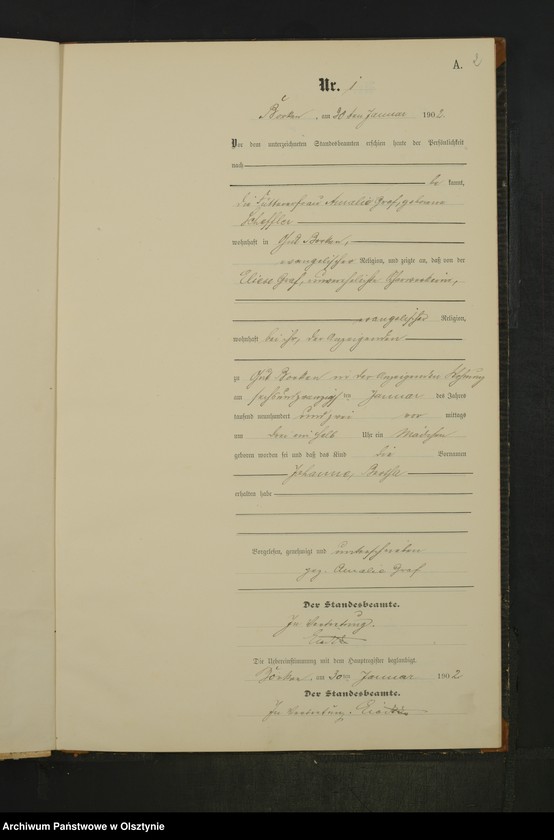 A. 2
Nr. 1
Borken, am 30ten Januar 1902.
Vor dem unterzeichneten Standesbeamten erschien heute, der Persönlichkeit
nach
be kannt,
die Amalie Graf, geborene
Scheffler
wohnhaft in Gut Borken,
evangelischer Religion, und zeigte an, daß von der
Graf, unverehelichte
evangelischer Religion,
wohnhaft bei ihr, der Anzeigenden
zu Gut Borken in der Anzeigenden Wohnung
am sechsundzwanzigsten Januar des Jahres
tausend neunhundert und zwei vor mittags
um Uhr ein Mädchen
geboren worden sei und daß das Kind die Vornamen
Johanne,
erhalten habe
Vorgelesen, genehmigt und unterschrieben
gez. Amalie Graf
Der Standesbeamte.
In Vertretung.
Die Uebereinstimmung mit dem Hauptregister beglaubigt.
Borken, am 30ten Januar 1902
Der Standesbeamte.
In Vertretung.
Archiwum Państwowe w Olsztynie